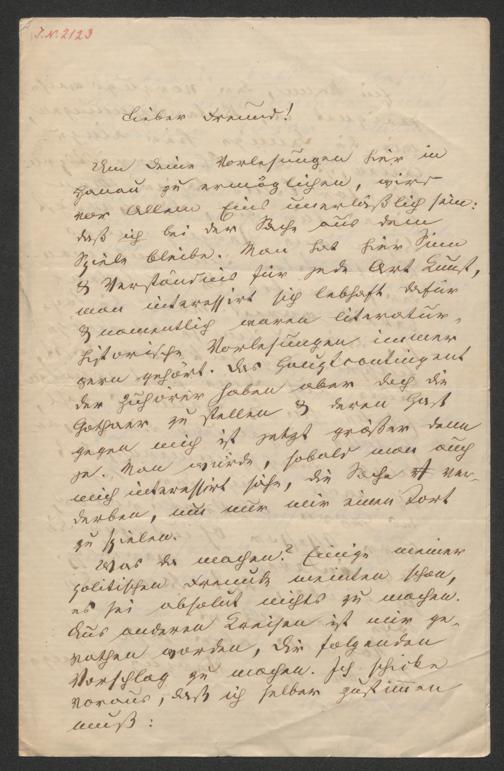 J.N. 2123
Lieber Freund!
Um Deine Vorlesungen hier in
Hanau zu ermöglichen, wird
vor Allem Eins unerläßlich sein:
daß ich bei der Sache aus dem
Spiele bleibe. Man hat hier Sinn
& Verständnis für jede Art Kunst,
man interessirt sich lebhaft dafür
& namentlich waren literatur-
historische Vorlesungen immer
gern gehört. Das Hauptcontingent
der Zuhörer haben aber doch die
Gothaer zu stellen & deren Haß
gegen mich ist jetzt größer denn
je. Man würde, sobald man auch
mich interessirt sähe, die Sache ver-
derben, nur mir einen Tort
zu spielen.
Was da machen? Einige meiner
politischen Freunde meinten schon,
es sei absolut nichts zu machen.
Aus anderen Kreisen ist mir ge-
rathen worden, Dir folgenden
Vorschlag zu machen. Ich schicke
voraus, daß ich selber zustimmen
muß: